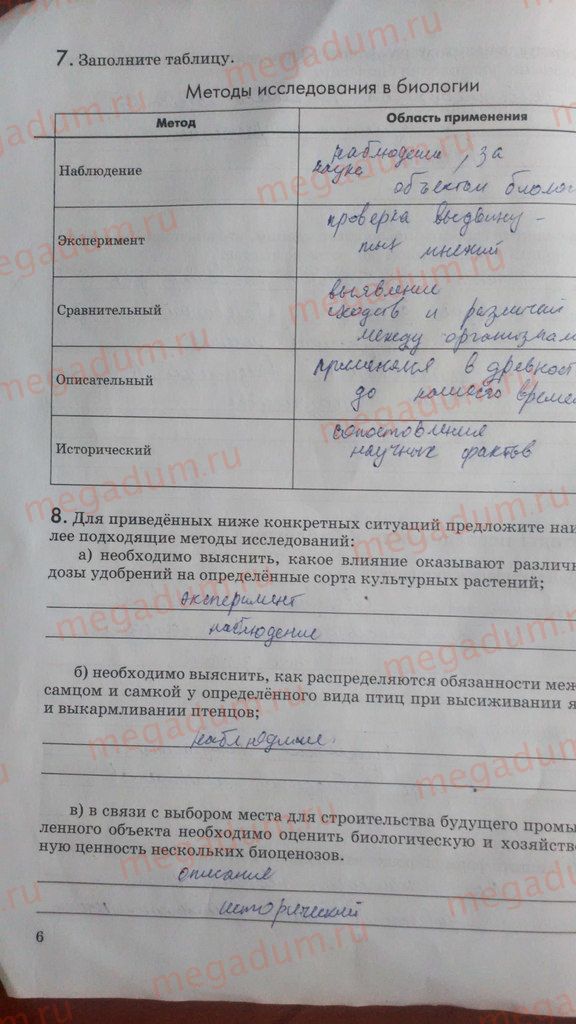 7. Заполните таблицу.
Методы исследования в биологии
Метод
Область применения
Наблюдение
наблюдение, за
науке
объектом биолог
Эксперимент
проверка выдвину-
тых мнений
Сравнительный
выявление
сходств и различий
между организмам
Описательный
применялся в древност
до нашего времен
Исторический
сопоставления
научных фактов
8. Для приведённых ниже конкретных ситуаций предложите наи
лее подходящие методы исследований:
а) необходимо выяснить, какое влияние оказывают различн
дозы удобрений на определённые сорта культурных растений;
эксперимент
наблюдение
б) необходимо выяснить, как распределяются обязанности меж
самцом и самкой у определённого вида птиц при высиживании я
и выкармливании птенцов;
наблюдение
в) в связи с выбором места для строительства будущего промы
ленного объекта необходимо оценить биологическую и хозяйстве
ную ценность нескольких биоценозов.
описания
исторический
6
megadum.ru